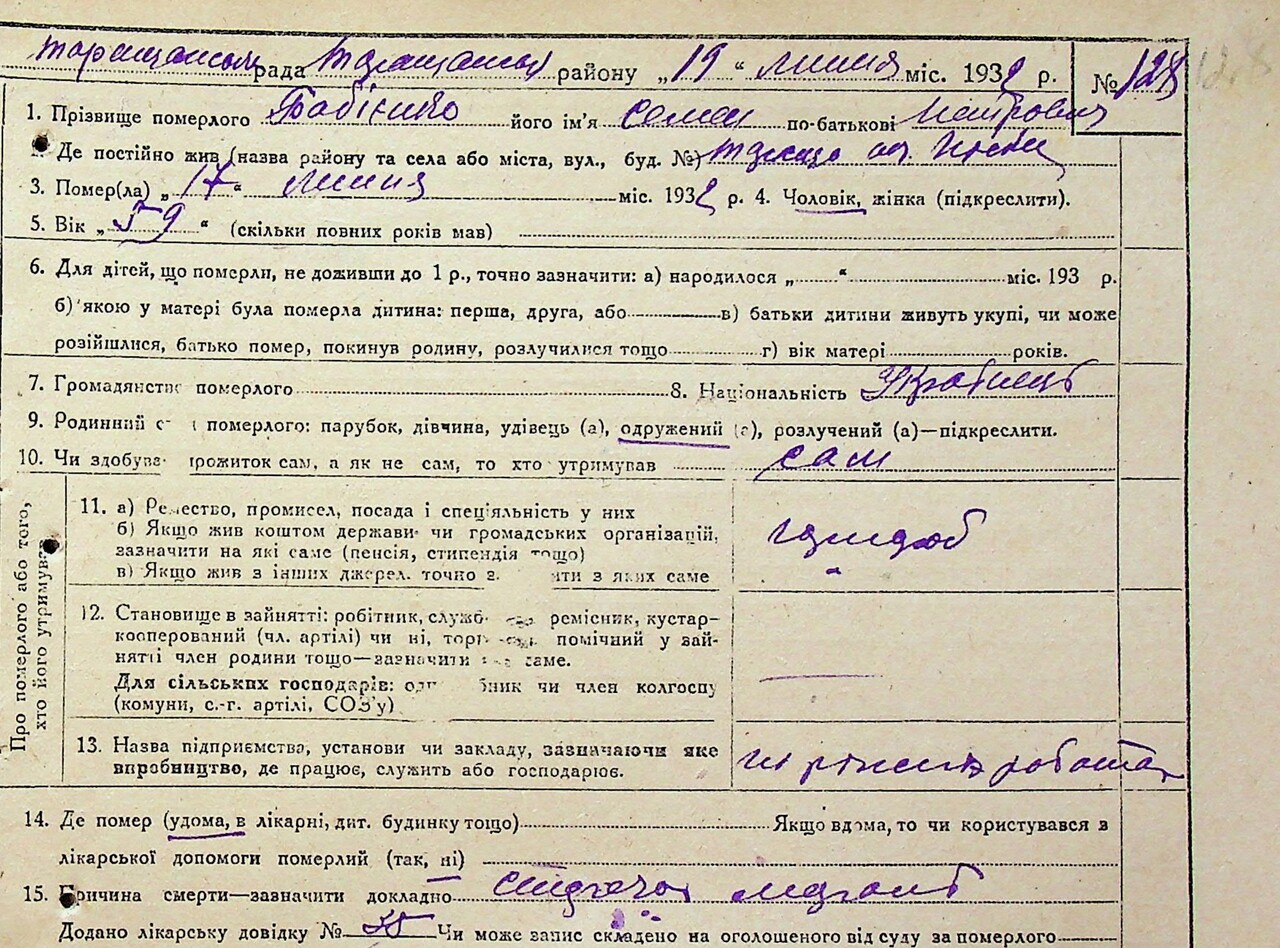 Таращанська рада Таращанськ району „19“ липня міс. 1932 р. № 128
1. Прізвище померлого його ім'я Семен по-батькові Петрович
2. Де постійно жив (назва району та села або міста, вул., буд. №) Тараща
3. Помер(ла) „17“ липня міс. 1932 р. 4. Чоловік, жінка (підкреслити).
5. Вік „59“ (скільки повних років мав)
6. Для дітей, що померли, не доживши до 1 р., точно зазначити: а) народилося „ “ міс. 193 р.
б) якою у матері була померла дитина: перша, друга, або в) батьки дитини живуть укупі, чи може
розійшлися, батько помер, покинув родину, розлучилися тощо г) вік матері років.
7. Громадянство померлого 8. Національність Українець
9. Родинний с померлого: парубок, дівчина, удівець (а), одружений (а), розлучений (а)—підкреслити.
10. Чи здобував прожиток сам, а як не сам, то хто утримував сам
Про померлого або того,
хто його утримував
11. а) Ремество, промисел, посада і спеціяльність у них
б) Якщо жив коштом держави чи громадських організацій,
зазначити на які саме (пенсія, стипендія тощо)
в) Якщо жив з інших джерел, точно з ити з яких саме
12. Становище в зайнятті: робітник, служб ремісник, кустар-
кооперований (чл. артілі) чи ні, торг помічний у зай-
нятті член родини тощо—зазначити саме.
Для сільських господарів: одн бник чи член колгоспу
(комуни, с.-г. артілі, СОЗ'у)
13. Назва підприємства, установи чи закладу, зазначаючи яке
виробництво, де працює, служить або господарює.
на різних роботах
14. Де помер (удома, в лікарні, дит. будинку тощо) Якщо вдома, то чи користувався з
лікарської допомоги померлий (так, ні)
15. Причина смерти—зазначити докладно
Додано лікарську довідку № Чи може запис складено на оголошеного від суду за померлого